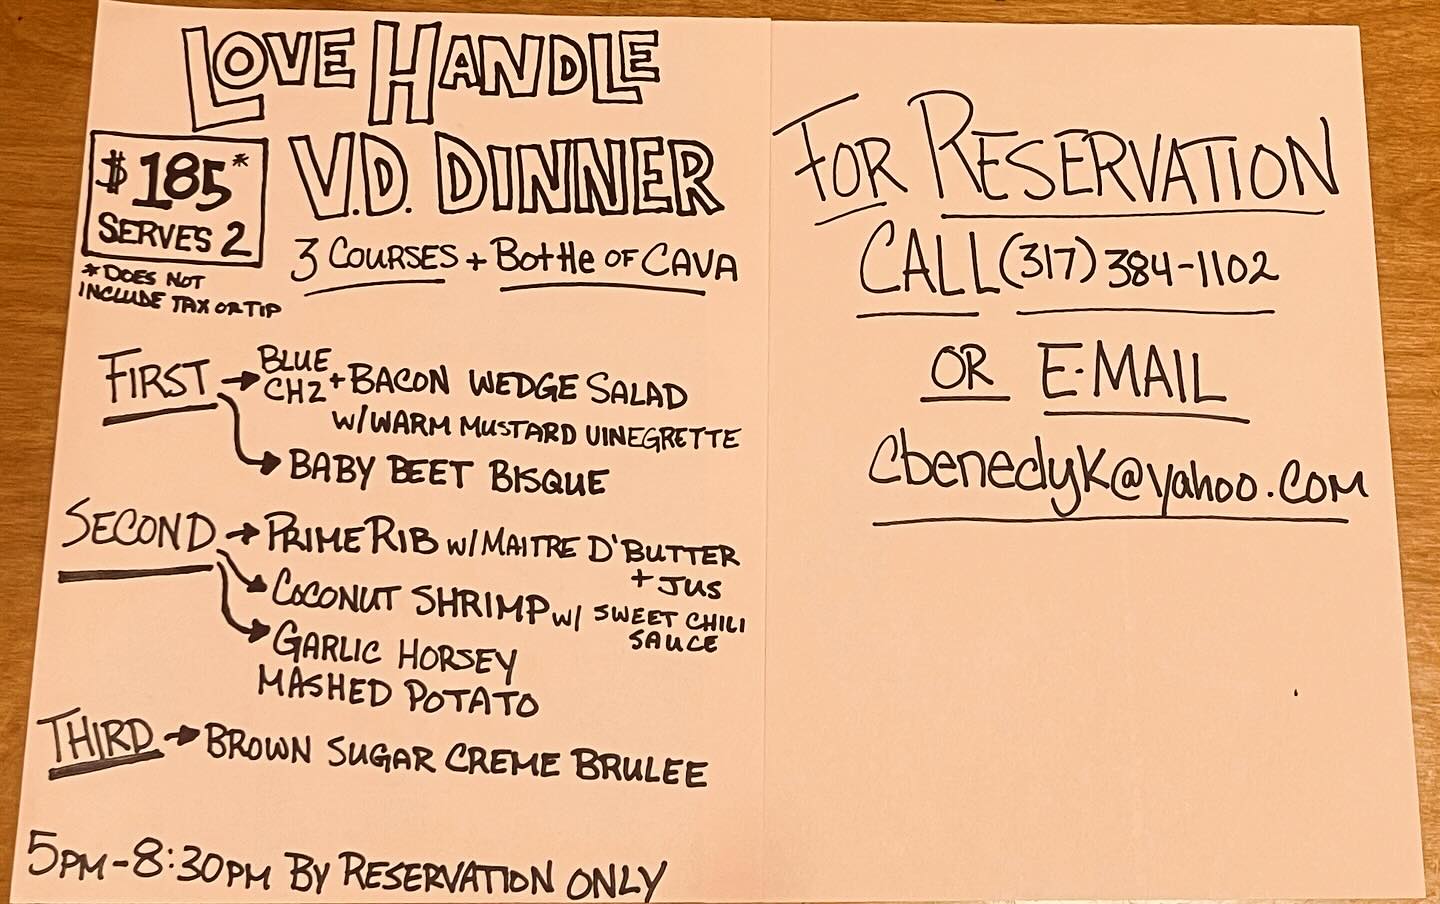 LOVE HANDLE
V.D. DINNER
$185*
SERVES 2
*DOES NOT
INCLUDE TAX OR TIP
3 COURSES + BOttle OF CAVA
FIRST → BLUE CHZ + BACON WEDGE SALAD
W/WARM MUSTARD VINEGRETTE
→ BABY BEET BISQUE
SECOND → PRIME RIB W/MAITRE D'BUTTER
+ JUS
→ COCONUT SHRIMP W/ SWEET CHILI
SAUCE
→ GARLIC HORSEY
MASHED POTATO
THIRD → BROWN SUGAR CREME BRULEE
5PM-8:30PM BY RESERVATION ONLY
FOR RESERVATION
CALL (317) 384-1102
OR E-MAIL
cbenedyk@yahoo.com